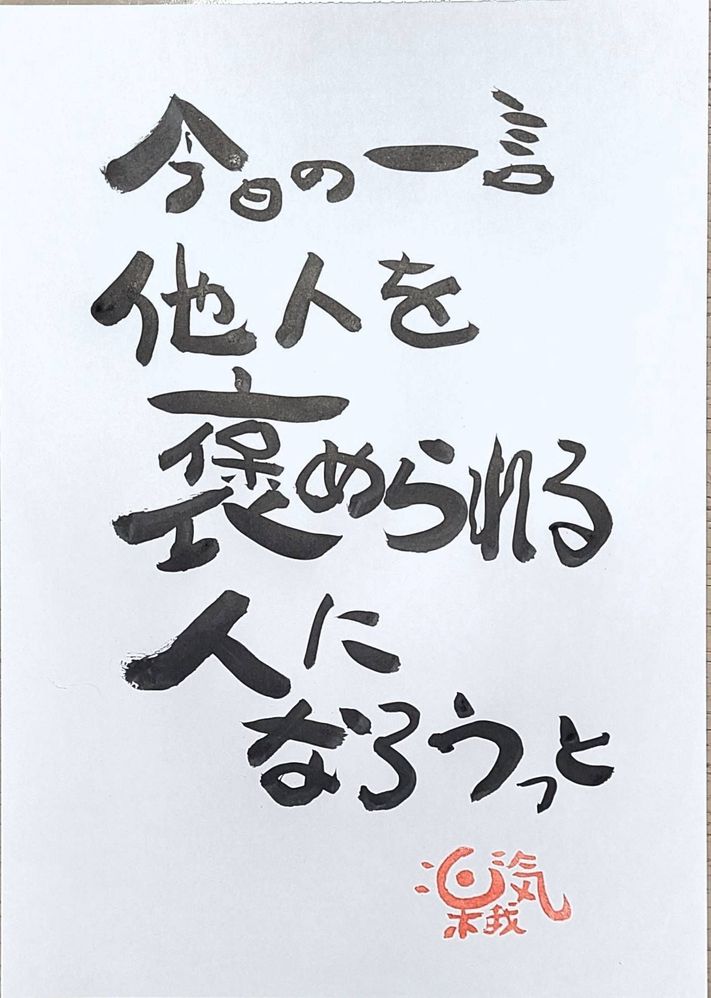 今日の一言
他人を
褒められる
人に
なろうっと